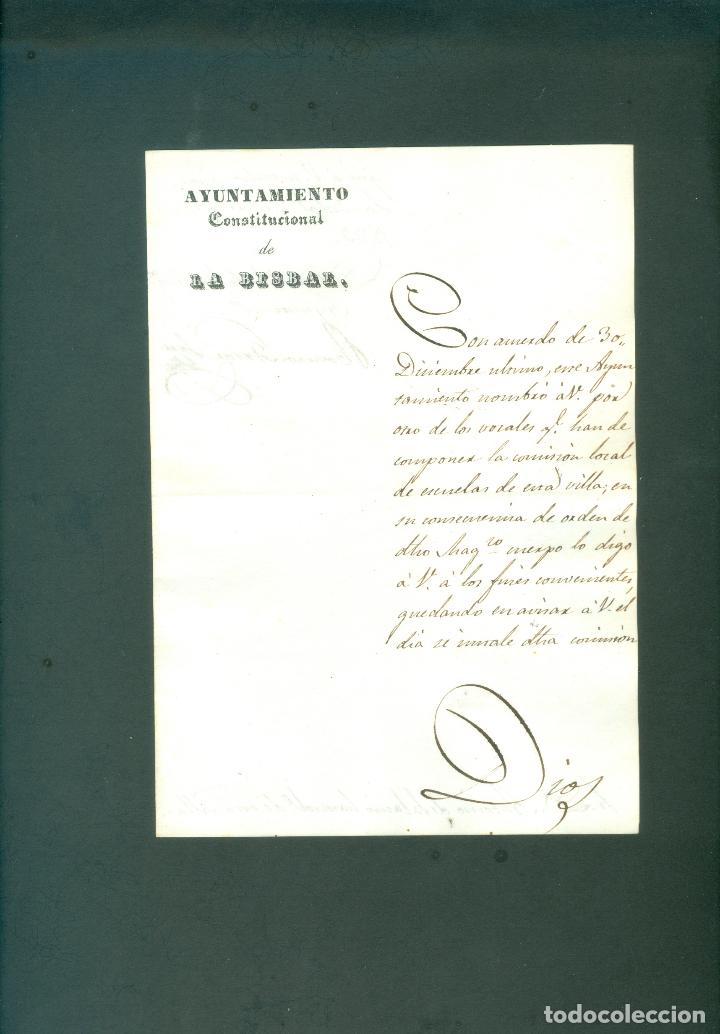 AYUNTAMIENTO
Constitucional
de
LA BISBAL.
Con acuerdo de 30,,
Diciembre ultimo, este Ayun
tamiento nombró á V. por
otro de los vocales q.e han de
componer la comisión local
de escuelas de esta villa; en
su consecuencia de orden de
dho Mag.co cuerpo lo digo
á V. á los fines convenientes,
quedando en avisar á V. el
dia se instale dha comisión
Dios
todocoleccion